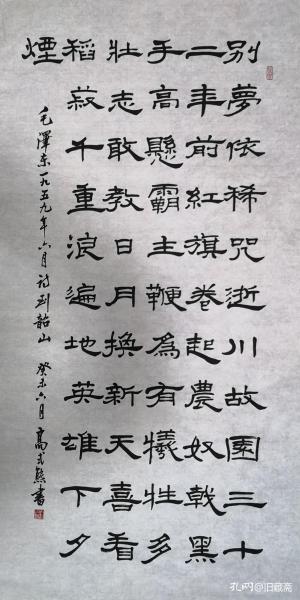 別夢依稀咒逝川故園三十
二年前紅旗卷起農奴戟黑
手高懸霸主鞭為有犧牲多
壯志敢教日月換新天喜看
稻菽千重浪遍地英雄下夕
煙
毛澤東一九五九年六月詩到韶山 癸未六月 高式熊書
孔网@旧藏斋